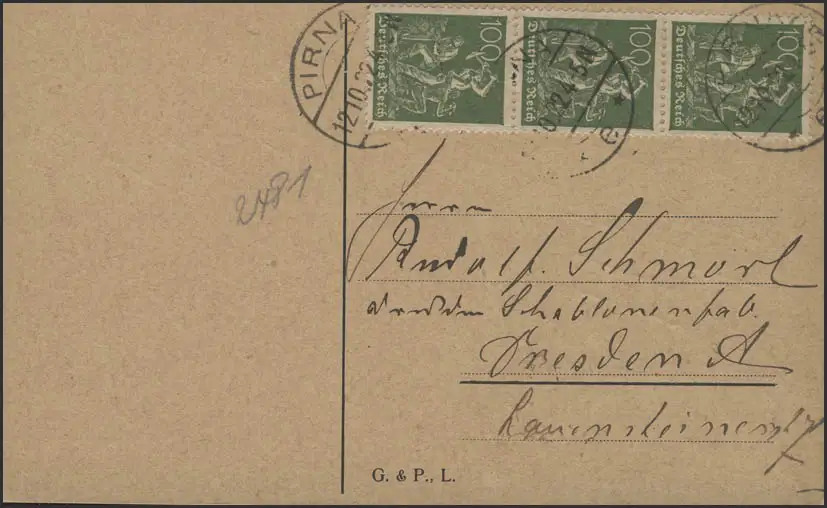 PIRNA
12.10.22
100 Deutsches Reich
100 Deutsches Reich
100 Deutsches Reich
2481
Herrn
Rudolf Schmorl
Schablonenfab.
Dresden A
Lauensteinerstr
G. & P., L.